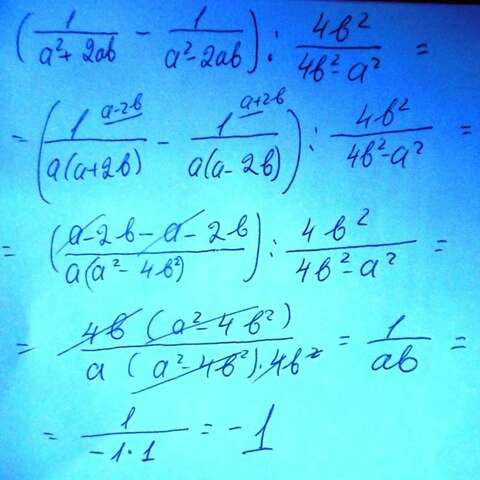 (1/(a²+2ab) - 1/(a²-2ab)) : 4b²/(4b²-a²) =
= (1^(a-2b)/(a(a+2b)) - 1^(a+2b)/(a(a-2b))) : 4b²/(4b²-a²) =
= ((a-2b-a-2b)/(a(a²-4b²))) : 4b²/(4b²-a²) =
= (4b(a²-4b²))/(a(a²-4b²)·4b²) = 1/(ab) =
= 1/(-1·1) = -1